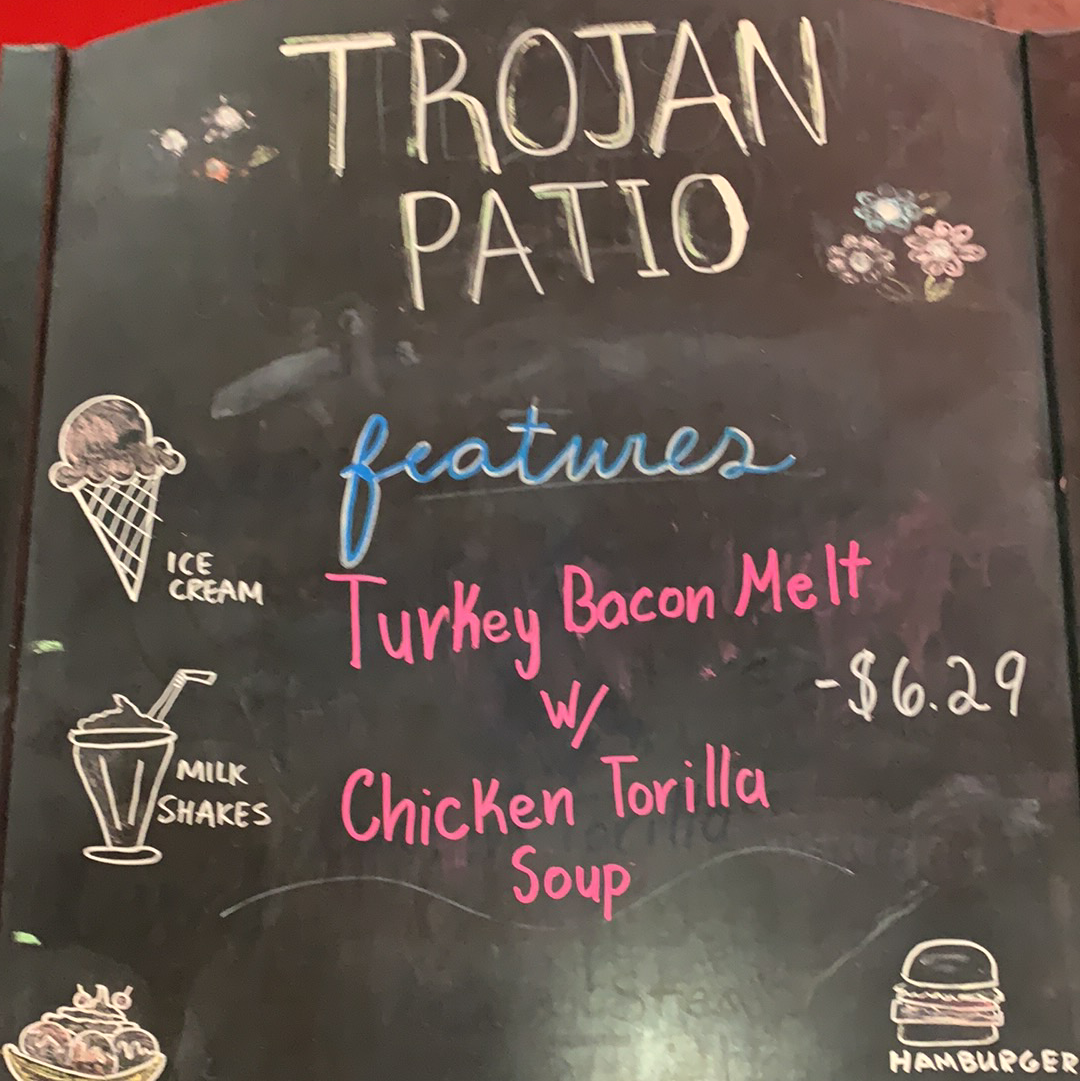 TROJAN
PATIO
features
ICE
CREAM
Turkey Bacon Melt
-$6.29
W/
MILK
SHAKES
Chicken Torilla
Soup
HAMBURGER